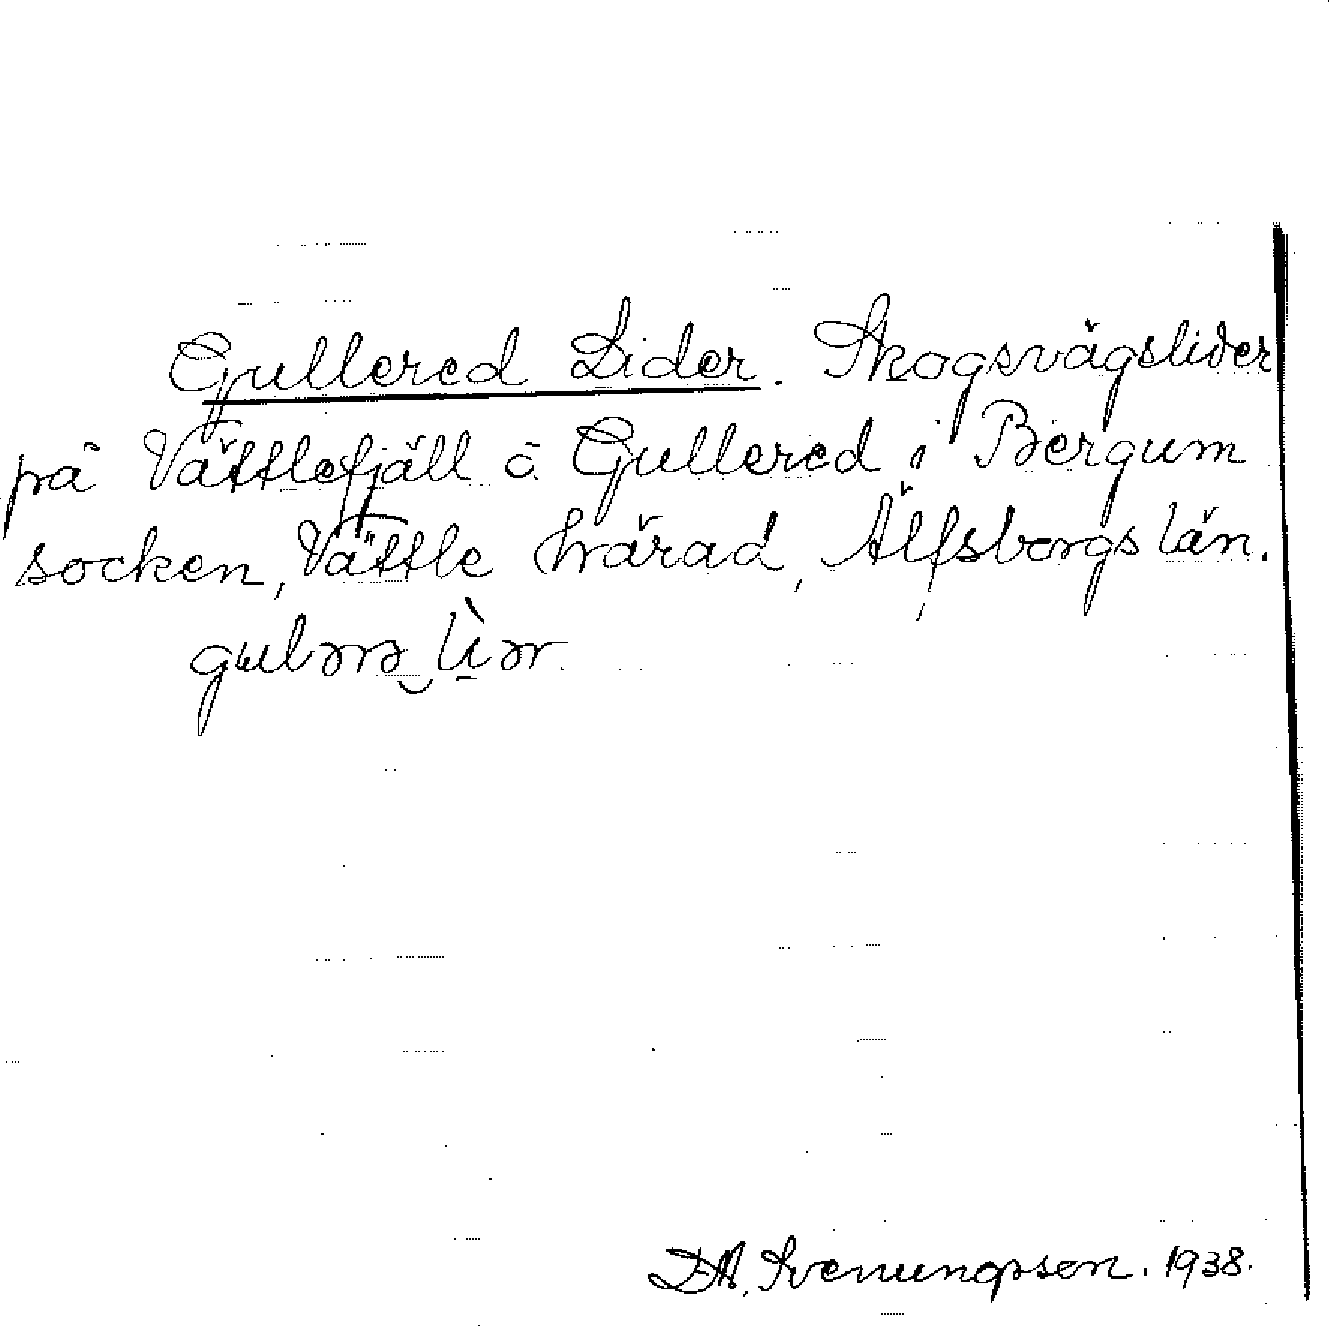 Gullered Lider. Skogsvägslider
på Vättlefjäll å Gullered i Bergum
socken, Vättle härad, Älfsborgs län.
gulərə lìər
D.A. Svenungsson. 1938.